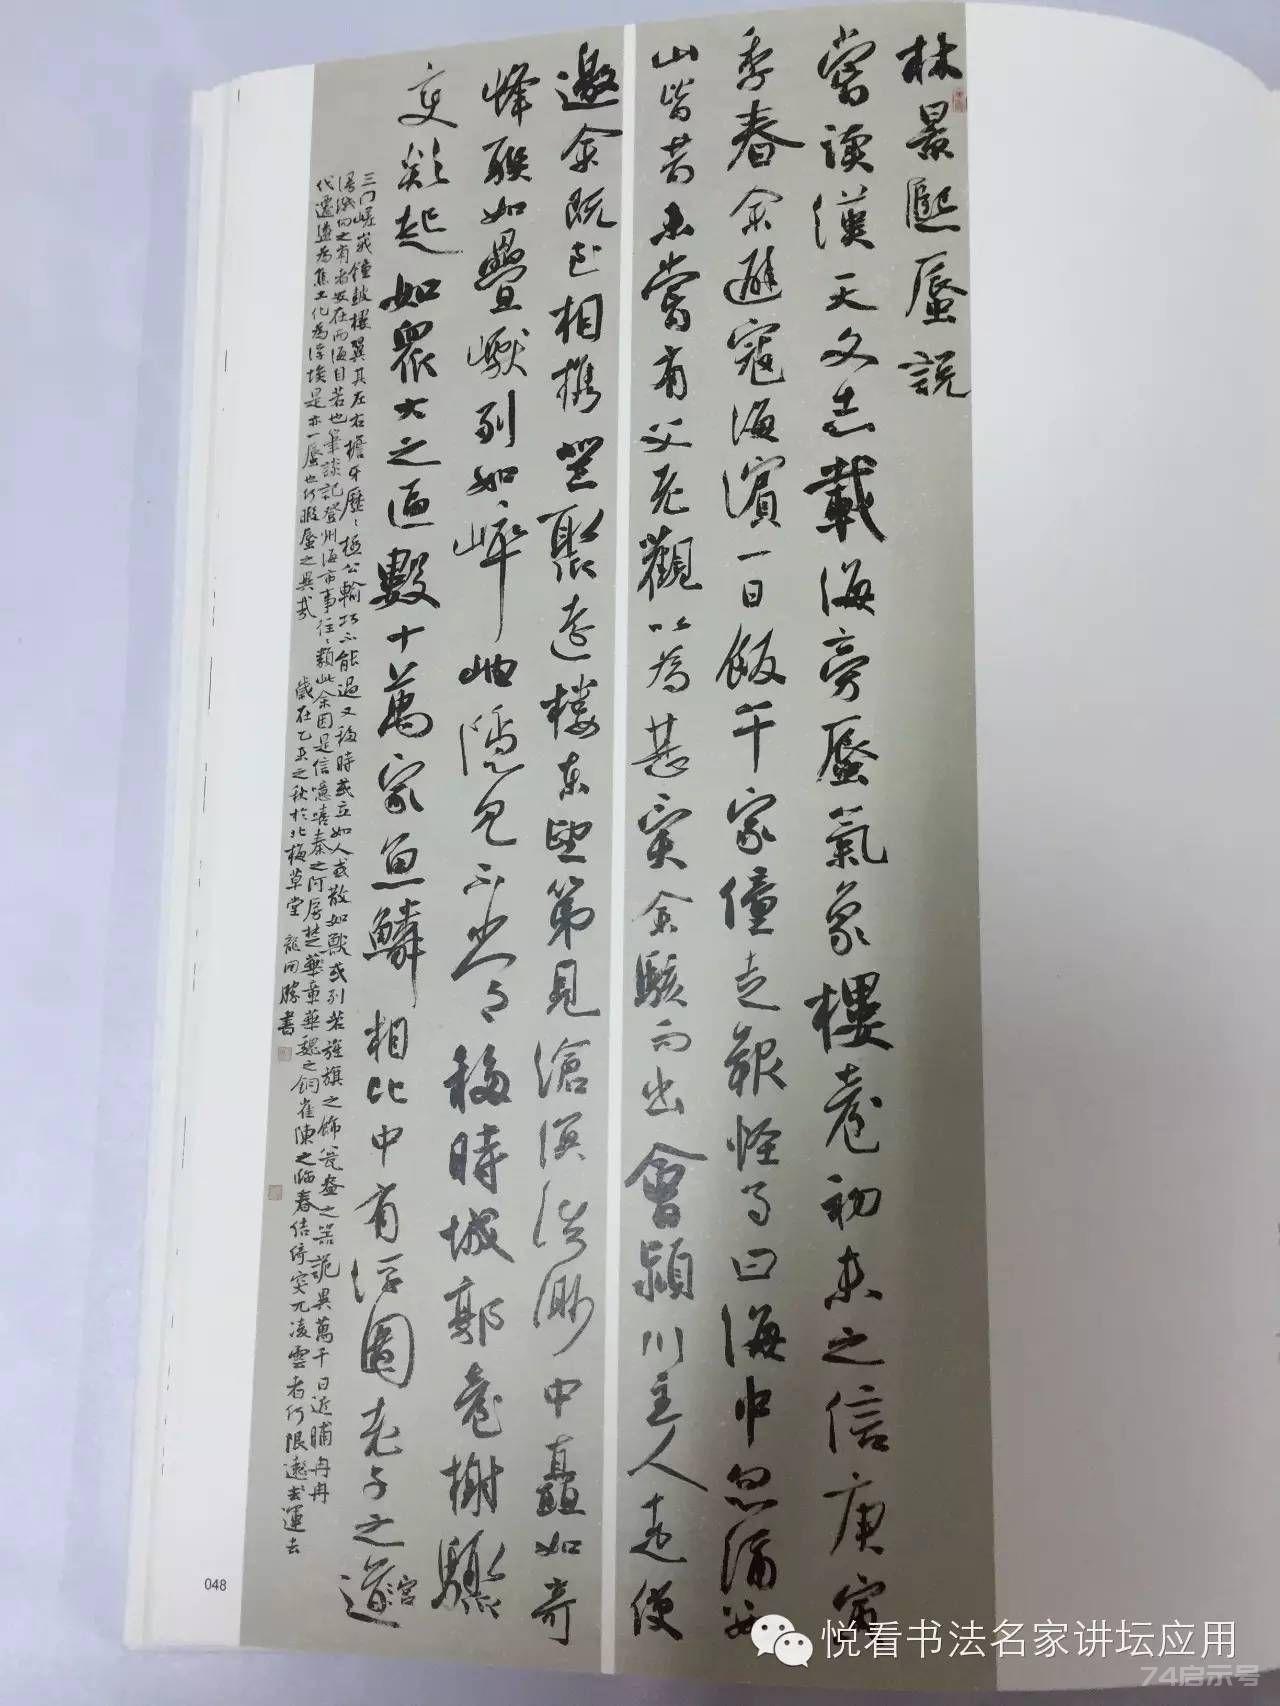 林景熙蜃說
嘗讀漢天文志載海旁蜃氣象樓臺初未之信庚寅
季春余避寇海濱一日飯午家僮走報怪事曰海中忽湧數
山皆昔未嘗有父老觀以為甚異余駭而出會潁川主人走使
邀余既至相攜登聚遠樓東望第見滄溟浩渺中矗如奇
峰聯如疊巘列如崒岫隱見不常移時城郭臺榭驟
變欻起如眾大之區數十萬家魚鱗相比中有浮圖老子之宮
三門嵯峨鐘鼓樓翼其左右檐牙歷歷極公輸巧不能過又移時或立如人或散如獸或列若旌旗之飾瓮盎之器詭異萬千日近晡冉冉
漫滅向之有者安在而海自若也筆談記登州海市事往往類此余因是信噫嘻秦之阿房楚華章華魏之銅雀陳之臨春結綺突兀凌雲者何限遠去運去
代遷蕩為焦土化為浮埃是亦一蜃也何暇蜃之異哉
歲在乙未之秋於北梅草堂 龍開勝書
048
悦看书法名家讲坛应用
74启示号